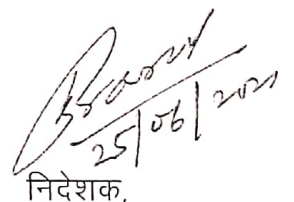 25/06/2021
निदेशक,